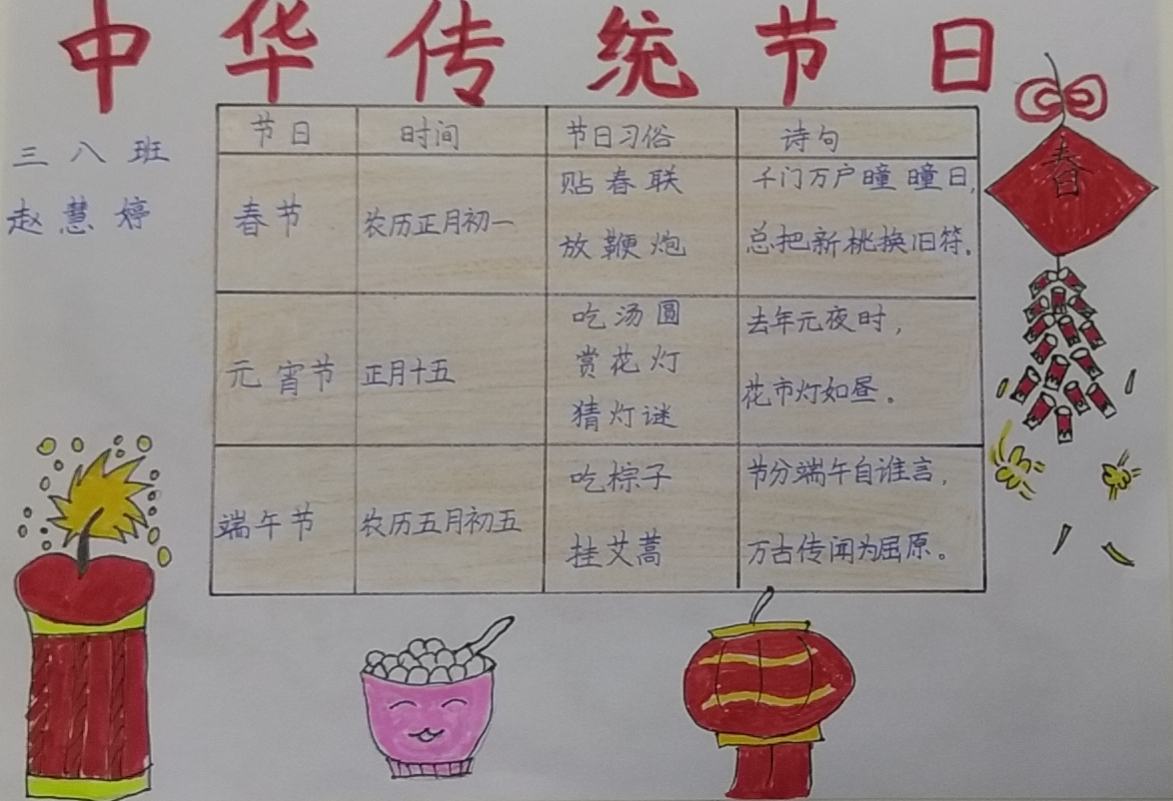 中华传统节日
三八班
赵慧婷
春
节日 时间 节日习俗 诗句
春节 农历正月初一
贴春联
放鞭炮
千门万户瞳瞳日,
总把新桃换旧符。
元宵节 正月十五
吃汤圆
赏花灯
猜灯谜
去年元夜时,
花市灯如昼。
端午节 农历五月初五
吃棕子
挂艾蒿
节分端午自谁言,
万古传闻为屈原。